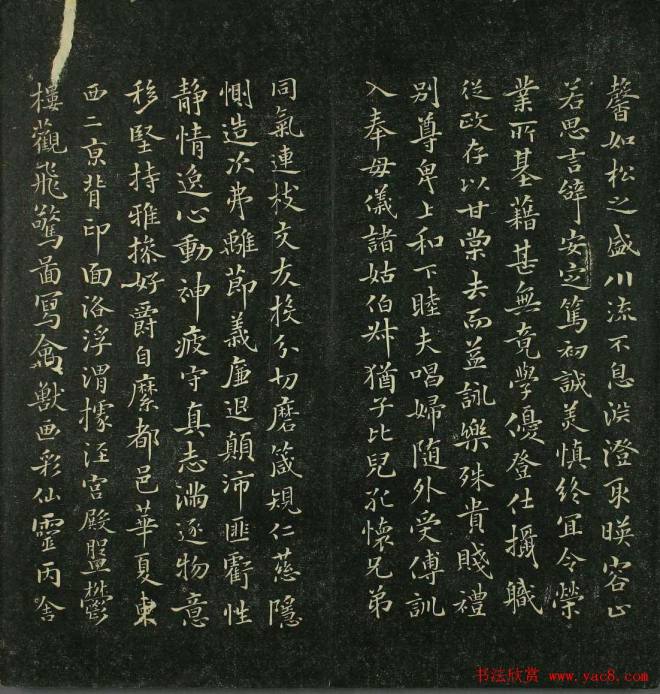 馨如松之盛川流不息淵澄取暎容止
若思言辭安定篤初誠美慎終宜令榮
業所基藉甚無竟學優登仕攝職
從政存以甘棠去而益詠樂殊貴賤禮
別尊卑上和下睦夫唱婦隨外受傅訓
入奉母儀諸姑伯叔猶子比兒孔懷兄弟
同氣連枝交友投分切磨箴規仁慈隱
惻造次弗離節義廉退顛沛匪虧性
靜情逸心動神疲守真志滿逐物意
移堅持雅操好爵自縻都邑華夏東
西二京背邙面洛浮渭據涇宮殿盤欝
樓觀飛驚啚寫禽獸画彩仙靈丙舍
书法欣赏 www.yac8.com